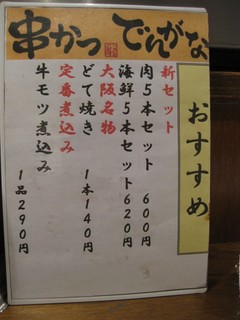 串かつ でんがな
おすすめ
新セット
肉5本セット 600円
海鮮5本セット620円
大阪名物
どて焼き 1本140円
定番煮込み
牛モツ煮込み 1品290円